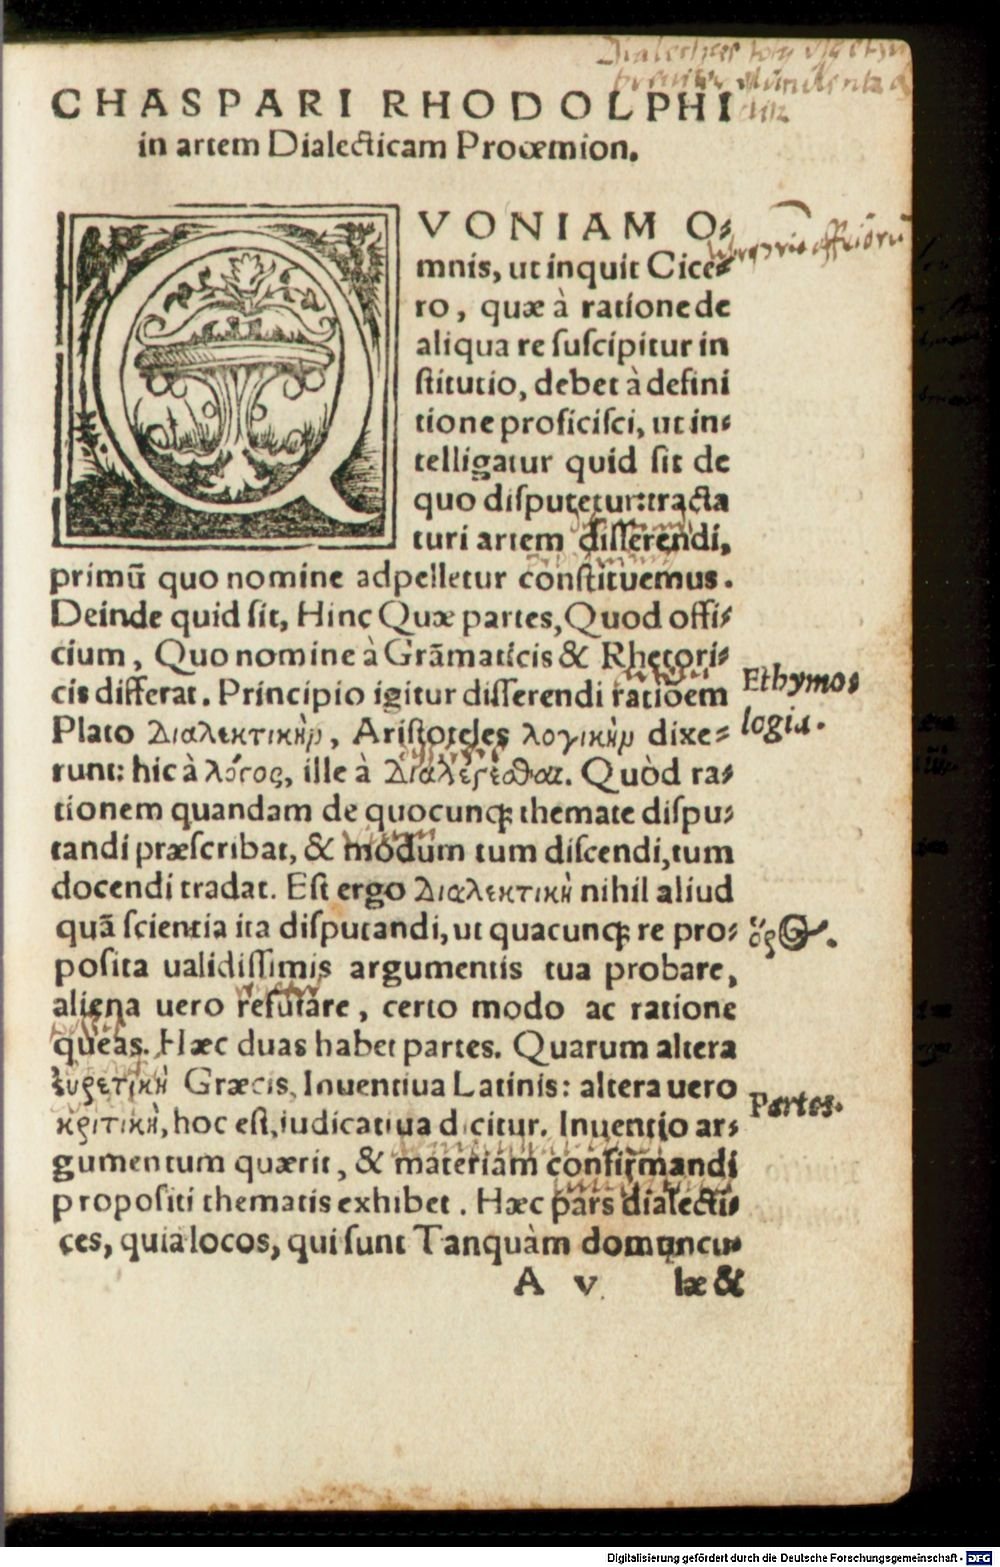 CHASPARI RHODOLPHI
in artem Dialecticam Proœmion.
QVONIAM O-
mnis, ut inquit Cice-
ro, quæ à ratione de
aliqua re ſuſcipitur in
ſtitutio, debet à defini
tione proficiſci, ut in-
telligatur quid ſit de
quo diſputetur: tracta
turi artem diſſerendi,
primũ quo nomine adpelletur conſtituemus.
Deinde quid ſit, Hinc Quæ partes, Quod offi-
cium, Quo nomine à Grãmaticis & Rhetori-
cis differat. Principio igitur diſſerendi ratiõem
Ethymo-
logia.
Plato Διαλεκτικὴν, Ariſtoteles λογικὴν dixe-
runt: hic à λόγος, ille à Διαλέγεσθαι. Quòd ra-
tionem quandam de quocunqꝫ themate diſpu-
tandi præſcribat, & modum tum diſcendi, tum
docendi tradat. Eſt ergo Διαλεκτικὴ nihil aliud
quã ſcientia ita diſputandi, ut quacunqꝫ re pro-
ὅρος.
poſita ualidiſſimis argumentis tua probare,
aliena uero refutare, certo modo ac ratione
queas. Hæc duas habet partes. Quarum altera
ἑυρετικὴ Græcis, Inuentiua Latinis: altera uero
Partes.
κριτικὴ, hoc eſt, iudicatiua dicitur. Inuentio ar-
gumentum quærit, & materiam confirmandi
propoſiti thematis exhibet. Hæc pars dialecti-
ces, quia locos, qui ſunt Tanquàm domuncu-
A v læ &
Digitalisierung gefördert durch die Deutsche Forschungsgemeinschaft - DFG